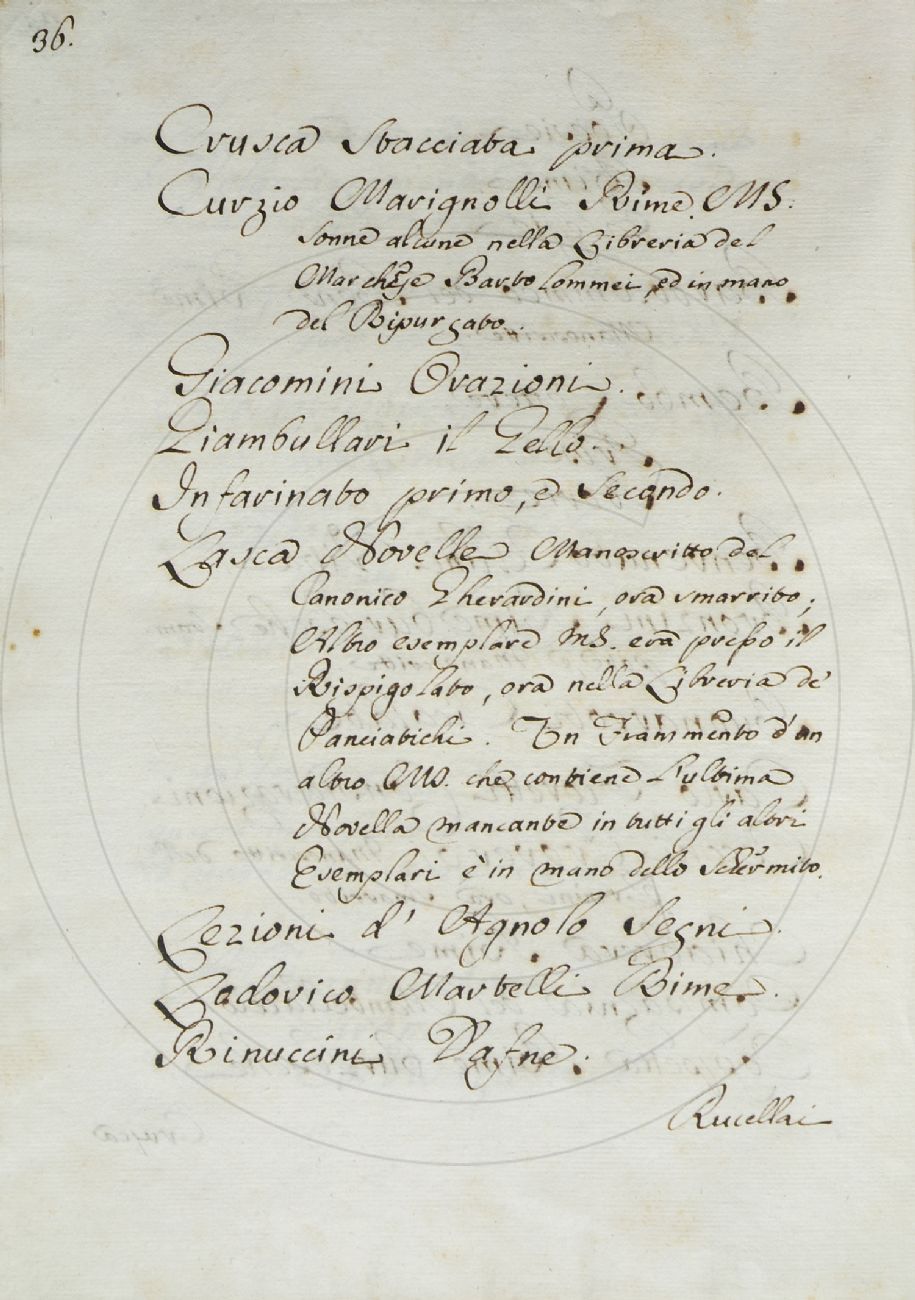 36.
Crusca Stacciata prima.
Curzio Marignolli Rime MS.
sonne alcune nella Libreria del
Marchese Bartolommei, ed in mano
del Ripurgato.
Giacomini Orazioni.
Giambullari il Gello.
Infarinato primo, e Secondo.
Lasca Novelle Manoscritto del
Canonico Gherardini, ora smarrito;
Altro esemplare MS. era presso il
Rispigolato, ora nella Libreria de'
Panciatichi. Un Frammento d'un
altro MS. che contiene l'ultima
Novella mancante in tutti gli altri
Esemplari è in mano dello Schermito.
Lezioni d' Agnolo Segni.
Lodovico Martelli Rime.
Rinuccini Dafne.
Rucellai